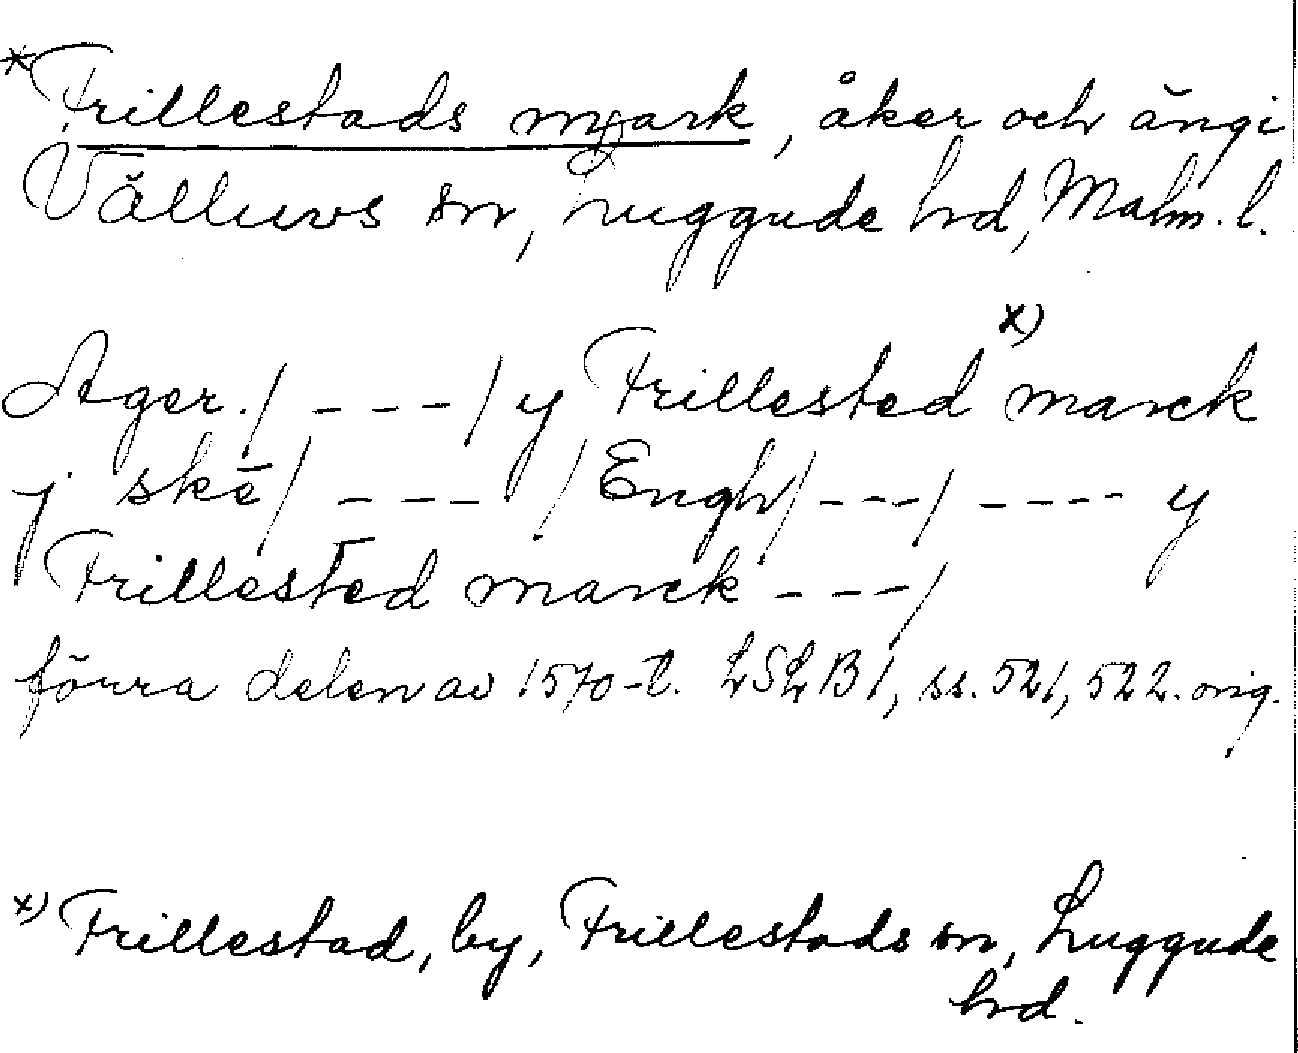 *Frillestads mark, åker och äng i
Välluvs sn, Luggude hrd, Malm. l.
Ager./ - - - / y Frillested x) marck
j skē / - - - / Engh / - - - / - - - - y
Frillested marck - - - /
förra delen av 1570-t. LSLB1, ss. 521, 522. orig.
x) Frillestad, by, Frillestads sn, Luggude
hrd.